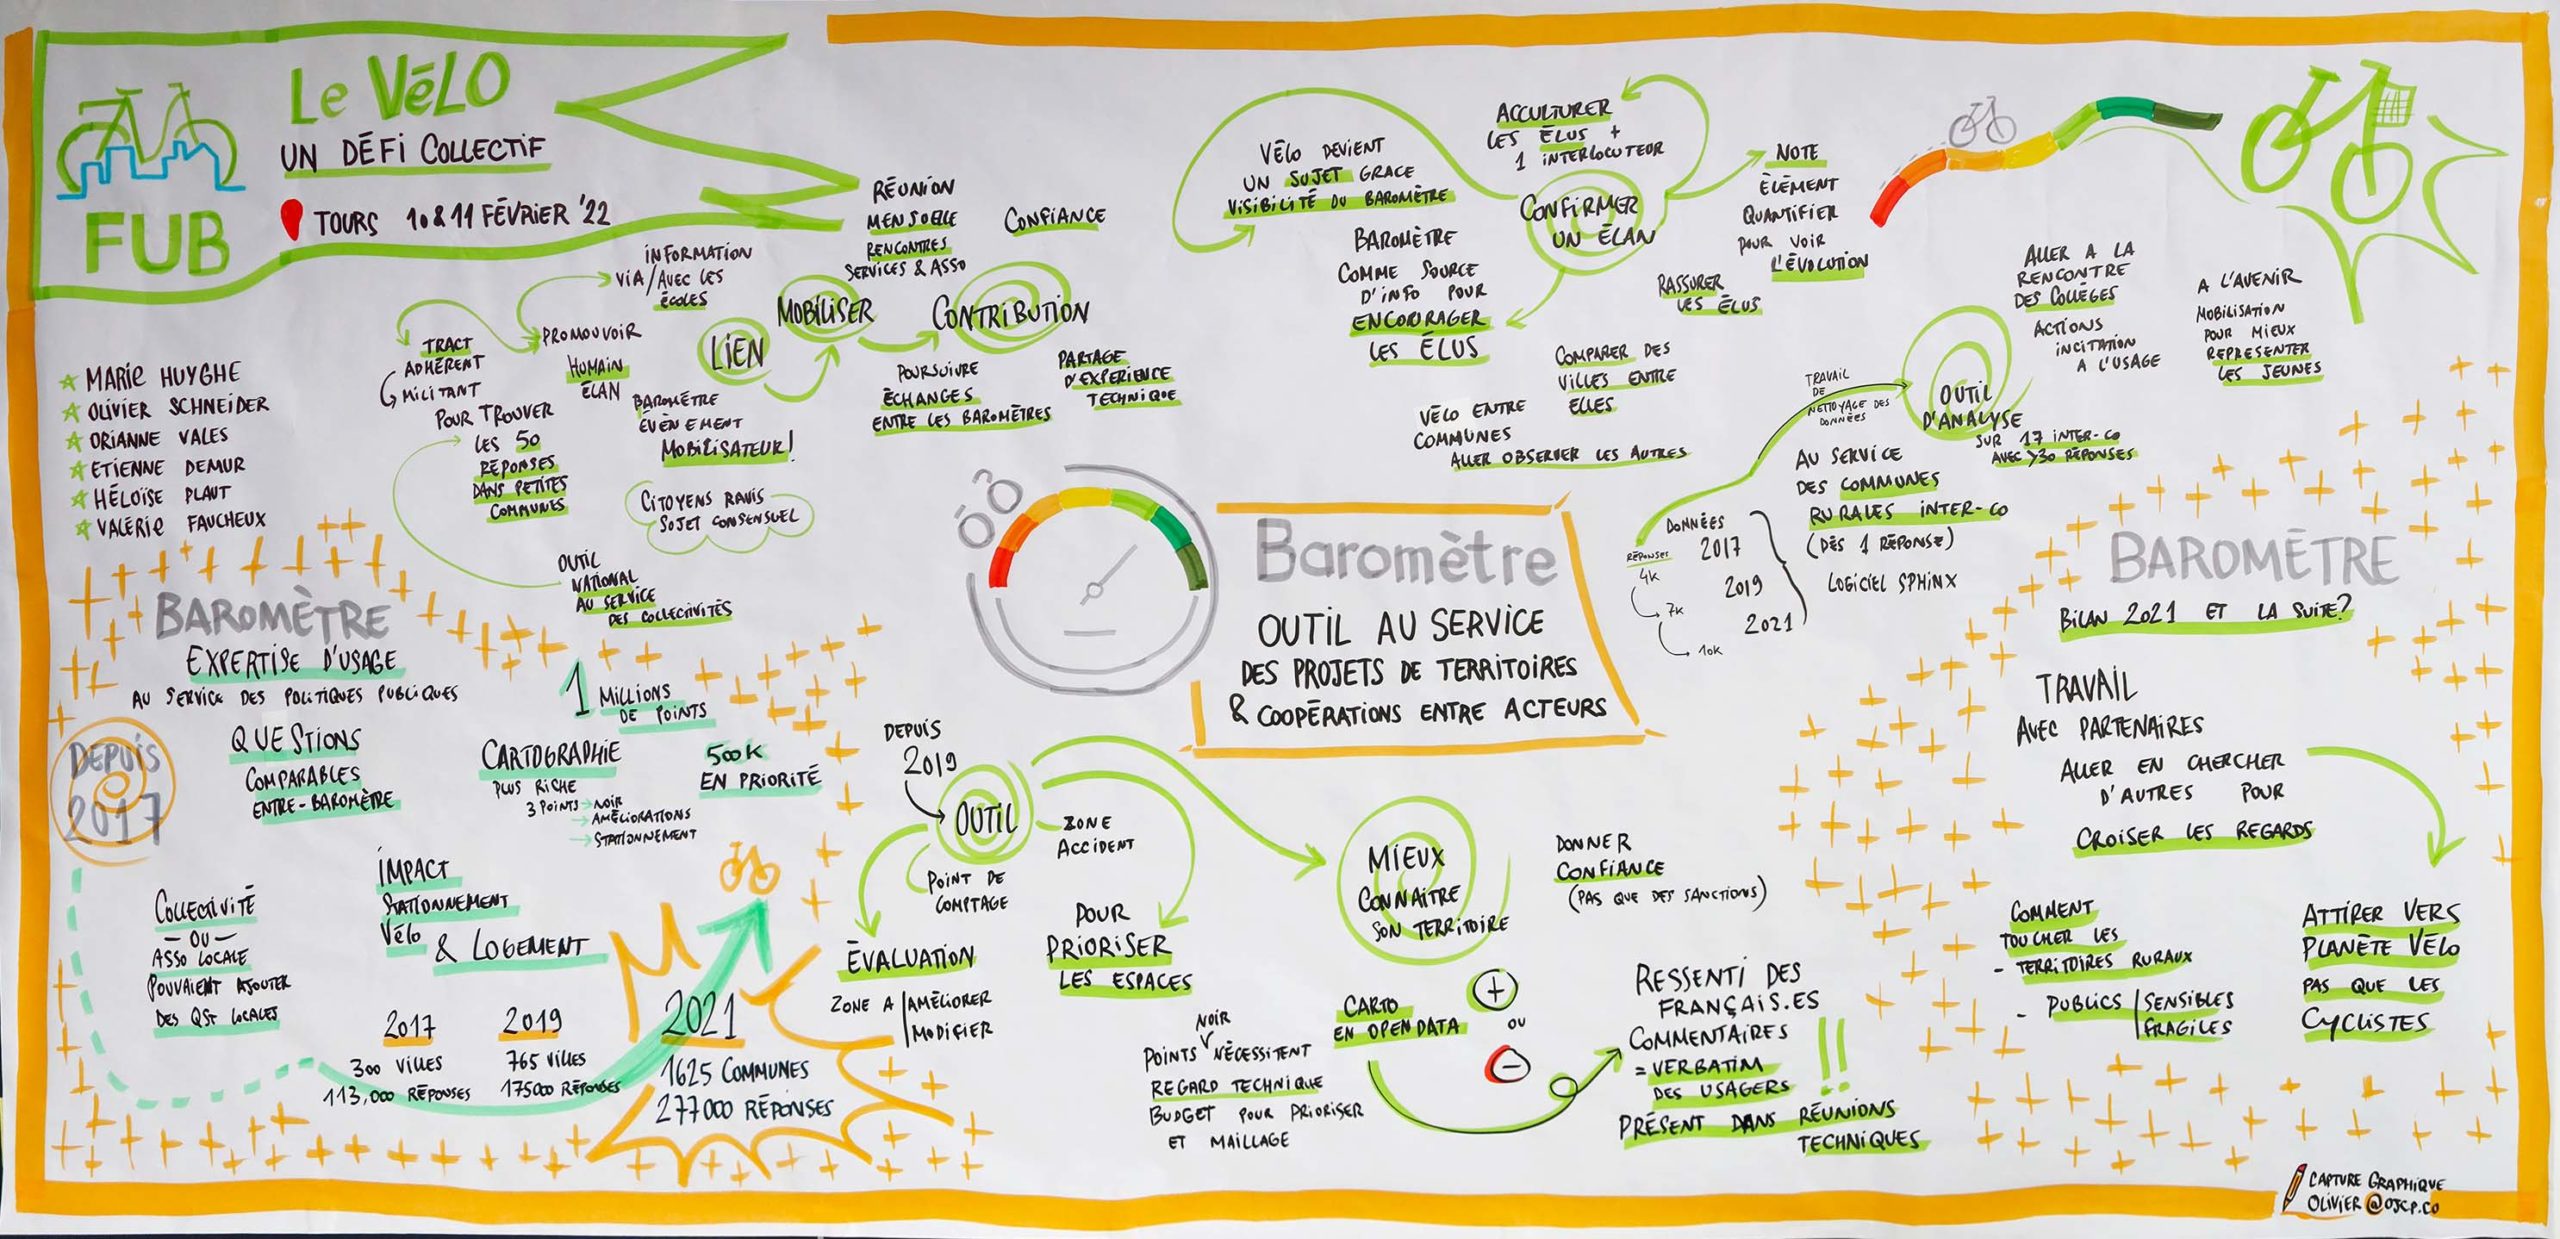 Le VéLO
UN DÉFI COLLECTIF
FUB
TOURS 10 & 11 FÉVRIER '22
MARIE HUYGHE
OLIVIER SCHNEIDER
ORIANNE VALES
ETIENNE DEMUR
HÉLOÏSE PLAUT
VALÉRIE FAUCHEUX
INFORMATION
VIA/AVEC LES
ÉCOLES
PROMOUVOIR
HUMAIN
ÉLAN
TRACT
ADHÉRENT
MILITANT
POUR TROUVER
LES 50
RÉPONSES
DANS PETITES
COMMUNES
BAROMÈTRE
ÉVÈNEMENT
MOBILISATEUR!
CITOYENS RAVIS
SUJET CONSENSUEL
OUTIL
NATIONAL
AU SERVICE
DES COLLECTIVITÉS
LIEN
MOBILISER
CONTRIBUTION
RÉUNION
MENSUELLE
RENCONTRES
SERVICES & ASSO
CONFIANCE
POURSUIVRE
ÉCHANGES
ENTRE LES BAROMÈTRES
PARTAGE
D'EXPERIENCE
TECHNIQUE
BAROMÈTRE
EXPERTISE D'USAGE
AU SERVICE DES POLITIQUES PUBLIQUES
DEPUIS
2017
QUESTIONS
COMPARABLES
ENTRE-BAROMÈTRE
1 MILLIONS
DE POINTS
CARTOGRAPHIE
PLUS RICHE
3 POINTS → NOIR
→ AMÉLIORATIONS
→ STATIONNEMENT
500K
EN PRIORITÉ
COLLECTIVITÉ
- OU -
ASSO LOCALE
POUVAIENT AJOUTER
DES QST LOCALES
IMPACT
STATIONNEMENT
Vélo
& LOGEMENT
2017
300 VILLES
113,000 RÉPONSES
2019
765 VILLES
175000 RÉPONSES
2021
1625 COMMUNES
277000 RÉPONSES
Baromètre
OUTIL AU SERVICE
DES PROJETS DE TERRITOIRES
& COOPÉRATIONS ENTRE ACTEURS
DEPUIS
2019
OUTIL
ZONE
ACCIDENT
POINT DE
COMPTAGE
ÉVALUATION
ZONE A AMÉLIORER
MODIFIER
POUR
PRIORISER
LES ESPACES
MIEUX
CONNAITRE
SON TERRITOIRE
DONNER
CONFIANCE
(PAS QUE DES SANCTIONS)
CARTO
EN OPEN DATA
+
OU
-
NOIR
POINTS NÉCESSITENT
REGARD TECHNIQUE
BUDGET POUR PRIORISER
ET MAILLAGE
RESSENTI DES
FRANÇAIS.ES
COMMENTAIRES
= VERBATIM
DES USAGERS
!!
PRÉSENT DANS RÉUNIONS
TECHNIQUES
VÉLO DEVIENT
UN SUJET GRACE
VISIBILITÉ DU BAROMÈTRE
ACCULTURER
LES ÉLUS +
1 INTERLOCUTEUR
CONFIRMER
UN ÉLAN
NOTE
ÉLÉMENT
QUANTIFIER
POUR VOIR
L'ÉVOLUTION
BAROMÈTRE
COMME SOURCE
D'INFO POUR
ENCOURAGER
LES ÉLUS
RASSURER
LES ÉLUS
COMPARER DES
VILLES ENTRE
ELLES
VÉLO ENTRE
COMMUNES
ALLER OBSERVER LES AUTRES
TRAVAIL
DE
NETTOYAGE DES
DONNÉES
OUTIL
D'ANALYSE
SUR 17 INTER-CO
AVEC >30 RÉPONSES
AU SERVICE
DES COMMUNES
RURALES INTER-CO
(DÈS 1 RÉPONSE)
LOGICIEL SPHINX
DONNÉES
2017
2019
2021
RÉPONSES
4K
7K
10K
ALLER A LA
RENCONTRE
DES COLLÈGES
ACTIONS
INCITATION
A L'USAGE
A L'AVENIR
MOBILISATION
POUR MIEUX
REPRESENTER
LES JEUNES
BAROMÈTRE
BILAN 2021 ET LA SUITE?
TRAVAIL
AVEC PARTENAIRES
ALLER EN CHERCHER
D'AUTRES POUR
CROISER LES REGARDS
COMMENT
TOUCHER LES
- TERRITOIRES RURAUX
- PUBLICS SENSIBLES
FRAGILES
ATTIRER VERS
PLANÈTE VÉLO
PAS QUE LES
CYCLISTES
CAPTURE GRAPHIQUE
OLIVIER@OJCP.CO